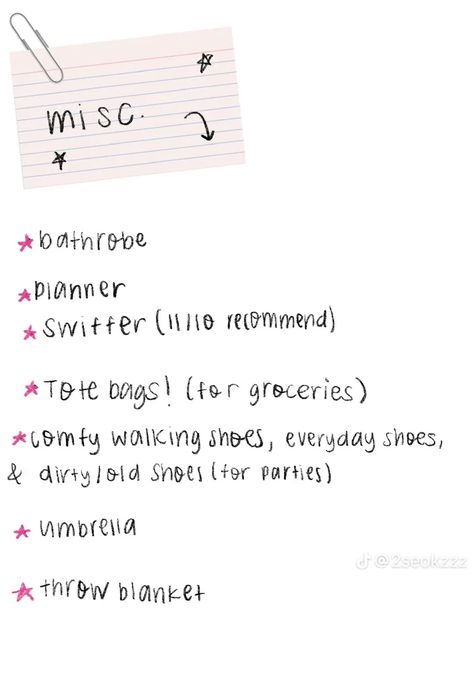 misc.
bathrobe
planner
swiffer (11/10 recommend)
Tote bags! (for groceries)
comfy walking shoes, everyday shoes,
& dirty/old shoes (for parties)
umbrella
@2seokzzz
throw blanket